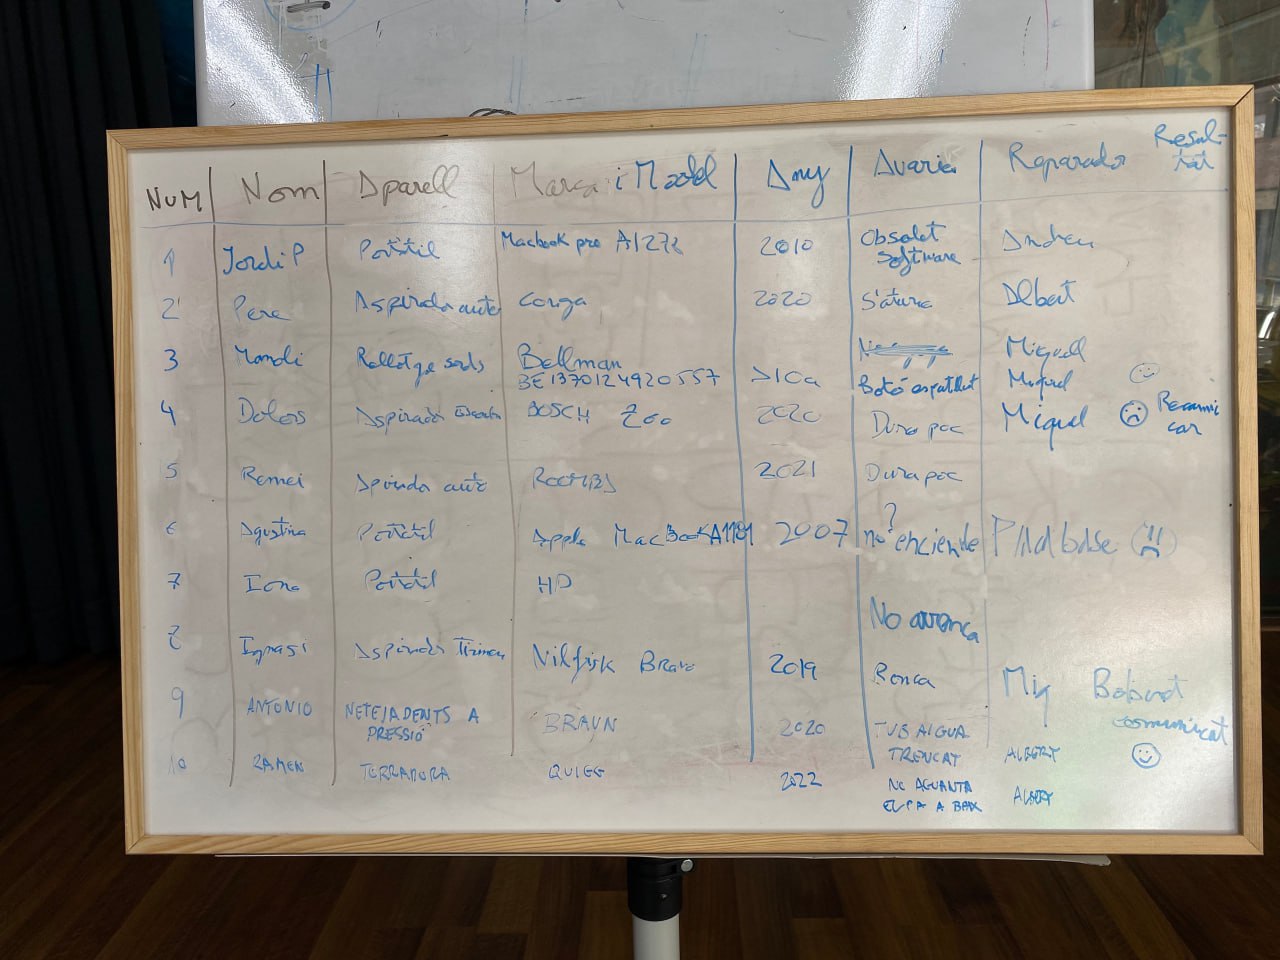 NUM Nom Aparell Marca i Model Any Avaria Reparador Resul-
tat
1 Jordi P Portàtil Macbook pro A1278 2010 Obsolet Andreu
software
2 Pere Aspirador auto Conga 2020 S'atura Albert
3 Manoli Rellotge sords Bellman Miquel
BE1370124920557 Botó espatllat Miquel
4 Dolors Aspirador BOSCH 2020 Dura poc Miquel Recanvi
car
5 Remei Aspirada auto ROOMBA 2021 Dura poc
?
6 Agustina Portàtil Apple MacBook A1181 2007 no enciende Placa base
7 Iona Portàtil HP
No arrenca
8 Ignasi Aspirador Nilfisk Bravo 2019 Ronca Miq
9 ANTONIO NETEJADENTS A BRAUN 2020 TUB AIGUA
PRESSIÓ TRENCAT ALBERT
10 RAMON TORRADORA QUIGG 2022 NO AGUANTA ALBERT
EL PA A BAIX